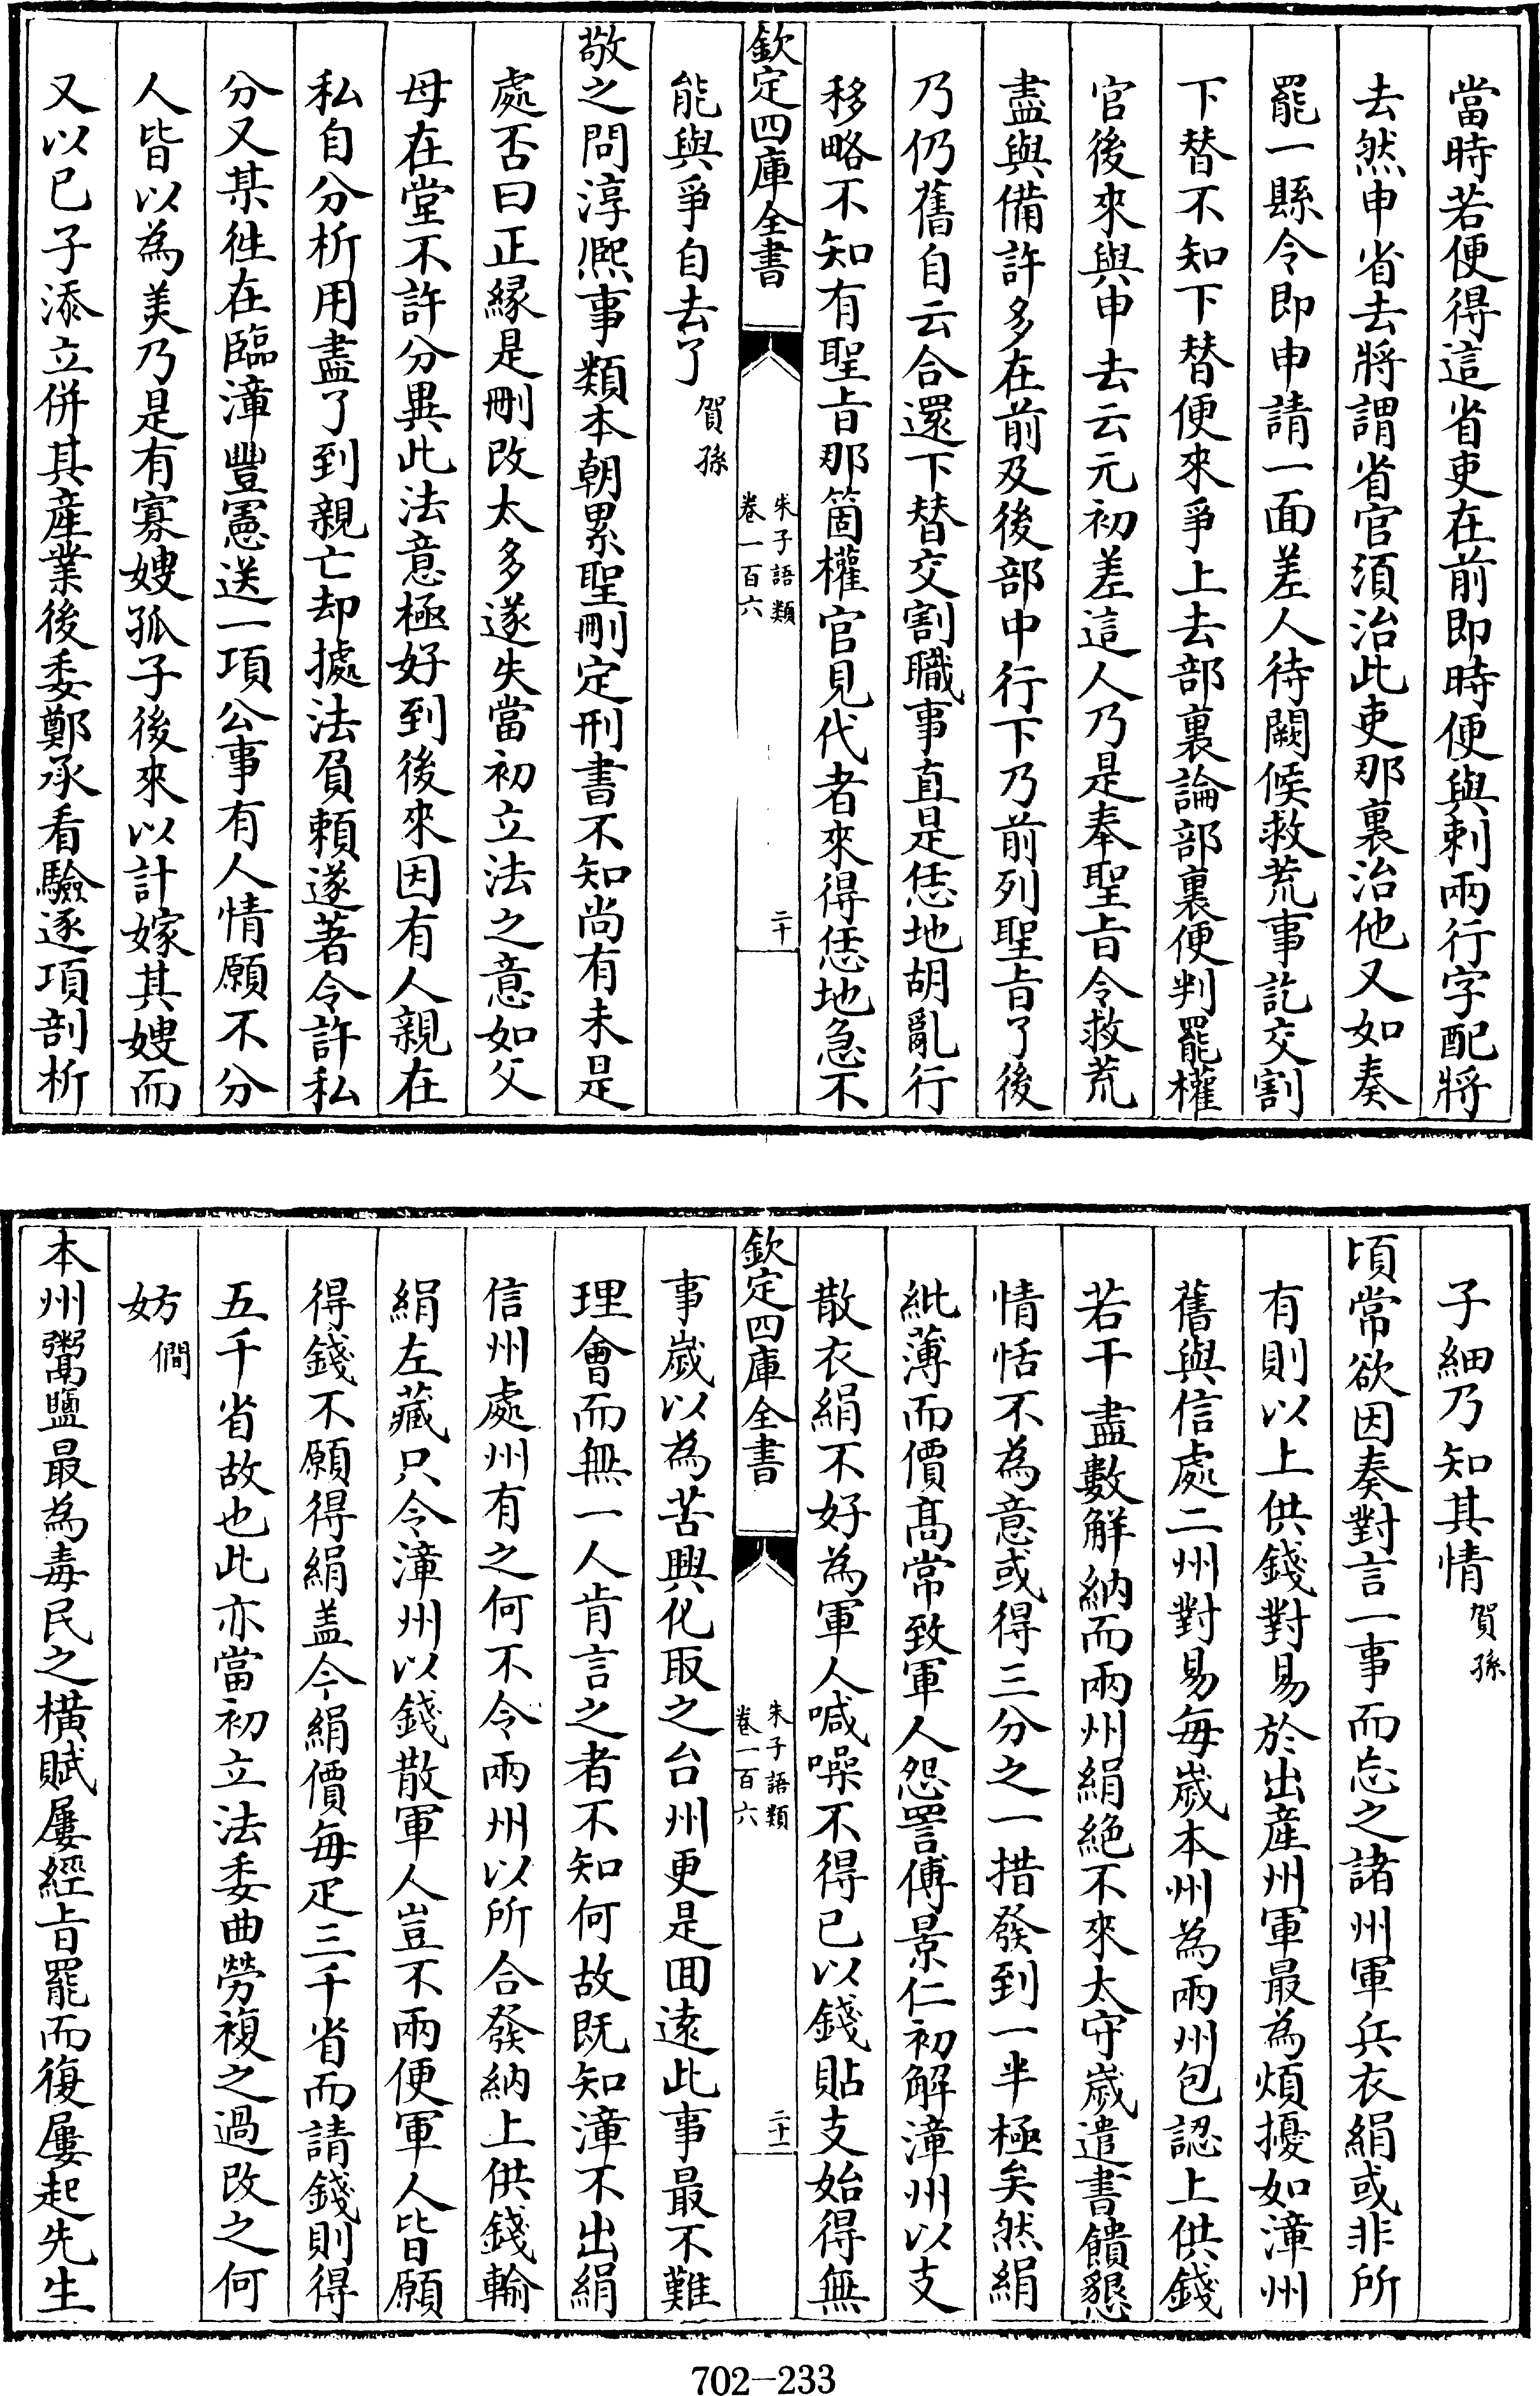 當時若便得這省吏在前即時便與剌兩行字配將
去然申省去將謂省官須治此吏那裏治他又如奏
罷一縣令即申請一面差人待闕候救荒事訖交割
下替不知下替便來爭上去部裏論部裏便判罷權
官後來與申去云元初差這人乃是奉聖㫖令救荒
盡與備許多在前及後部中行下乃前列聖㫖了後
乃仍舊自云合還下替交割職事直是恁地胡亂行
移略不知有聖㫖那箇權官見代者來得恁地急不
欽定四庫全書
朱子語類
卷一百六
二十
能與爭自去了賀孫
敬之問淳熙事類本朝累聖刪定刑書不知尚有未是
處否曰正緣是刪改太多遂失當初立法之意如父
母在堂不許分異此法意極好到後來因有人親在
私自分析用盡了到親亡却據法負賴遂著令許私
分又某徃在臨漳豐憲送一項公事有人情願不分
人皆以為美乃是有寡嫂孤子後來以計嫁其嫂而
又以已子添立併其產業後委鄭承看驗逐項剖析
子細乃知其情賀孫
頃常欲因奏對言一事而忘之諸州軍兵衣絹或非所
有則以上供錢對易於出產州軍最為煩擾如漳州
舊與信處二州對易每嵗本州為兩州包認上供錢
若干盡數解納而兩州絹絶不來太守嵗遣書饋懇
情恬不為意或得三分之一措發到一半極矣然絹
紕薄而價髙常致軍人怨詈傅景仁初解漳州以支
散衣絹不好為軍人喊噪不得已以錢貼支始得無
欽定四庫全書
朱子語類
卷一百六
二十一
事嵗以為苦興化取之台州更是囬遠此事最不難
理會而無一人肯言之者不知何故既知漳不出絹
信州處州有之何不令兩州以所合發納上供錢輸
絹左藏只令漳州以錢散軍人豈不兩便軍人皆願
得錢不願得絹盖今絹價每疋三千省而請錢則得
五千省故也此亦當初立法委曲勞複之過改之何
妨僩
本州鬻鹽最為毒民之横賦屢經㫖罷而復屢起先生
702-233